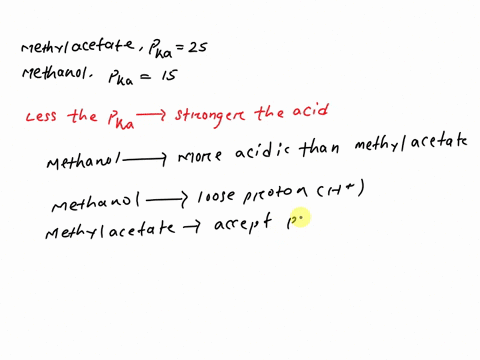 Methylacetate, Pka = 25
Methanol. Pka = 15
Less the Pka → stronger the acid
Methanol → More acidic than methylacetate
Methanol → loose proton (H+)
Methylacetate → accept p